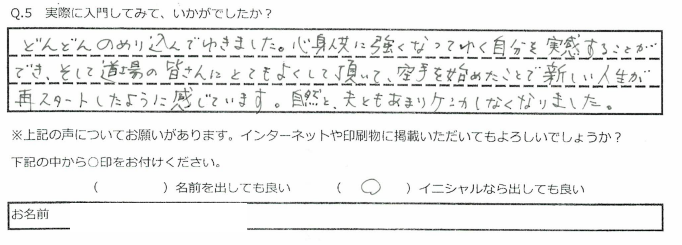 Q.5 実際に入門してみて、いかがでしたか？
どんどんのめり込んでゆきました。心身共に強くなってゆく自分を実感することが
でき、そして道場の皆さんにとてもよくして頂いて、空手を始めたことで新しい人生が
再スタートしたように感じています。自然と、夫ともあまりケンカしなくなりました。
※上記の声についてお願いがあります。インターネットや印刷物に掲載いただいてもよろしいでしょうか？
下記の中から○印をお付けください。
（　　　）名前を出しても良い　（　○　）イニシャルなら出しても良い
お名前